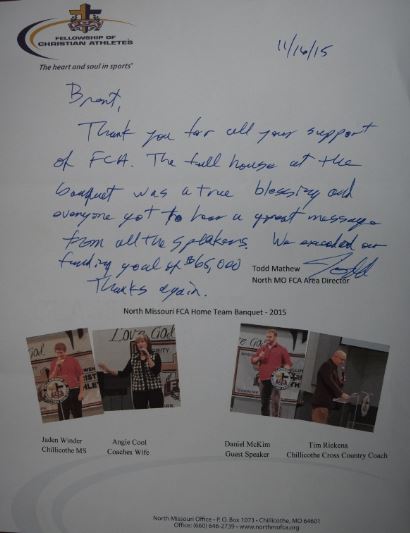 FELLOWSHIP OF
CHRISTIAN ATHLETES
The heart and soul in sports
11/16/15
Brent,
Thank you for all your support
of FCA. The full house at the
banquet was a true blessing and
everyone got to hear a great message
from all the speakers. We exceeded our
funding goal of $65,000
Thanks again.
Todd
Todd Mathew
North MO FCA Area Director
North Missouri FCA Home Team Banquet - 2015
Love God
Jaden Winder
Chillicothe MS
Angie Cool
Coaches Wife
Daniel McKim
Guest Speaker
Tim Rickens
Chillicothe Cross Country Coach
North Missouri Office - P. O. Box 1073 - Chillicothe, MO 64601
Office: (660) 646-2739 - www.northmofca.org